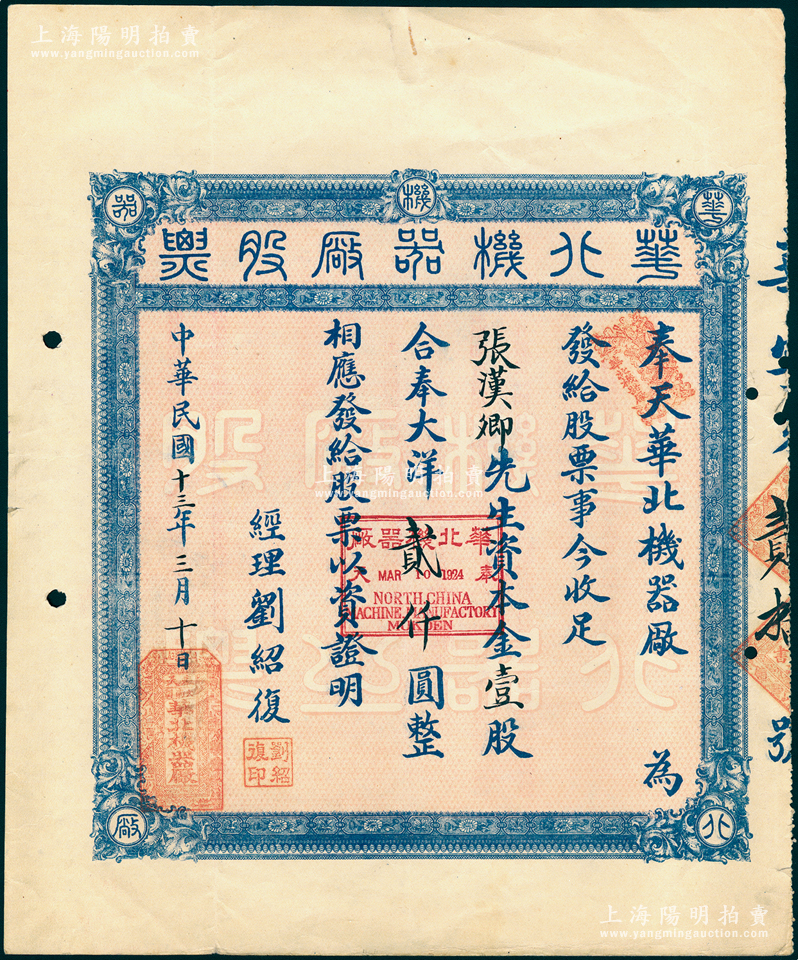 上海陽明拍賣
www.yangmingauction.com
華
機
器
華北機器廠股票
奉天華北機器廠 為
發給股票事今收足
張漢卿先生資本金壹股
合奉大洋貳仟圓整
相應發給股票以資證明
經理劉紹復
中華民國十三年三月十日
華機廠股
北器並票
上海陽明拍賣
www.yangmingauction.com
華北機器廠
奉 MAR 10 1924 天
NORTH CHINA
MACHINE MANUFACTORY
MUKDEN
劉紹
復印
華北機器廠
北
廠
號
上海陽明拍賣
www.yangmingauction.com